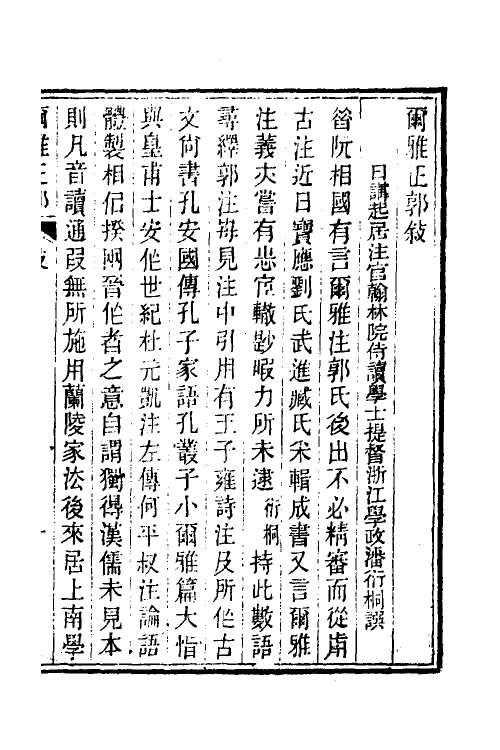 爾雅正郭敍
日講起居注官翰林院侍讀學士提督浙江學政潘衍桐譔
昝阮相國有言爾雅注郭氏後出不必精審而從歬
古注近日寶應劉氏武進臧氏宷輯成書又言爾雅
注義夫嘗有志宦轍尟暇力所未逮衍桐持此數語
尋繹郭注每見注中引用有王子雍詩注及所偽古
文尚書孔安國傳孔子家語孔叢子小爾雅篇大恉
與皇甫士安偽世紀杜元凱注左傳何平叔注論語
體製相佀揆兩晉作者之意自謂獨得漢儒未見本
則凡音讀通叚無所施用蘭陵家法後來居上南學
爾雅正郭 敍 一